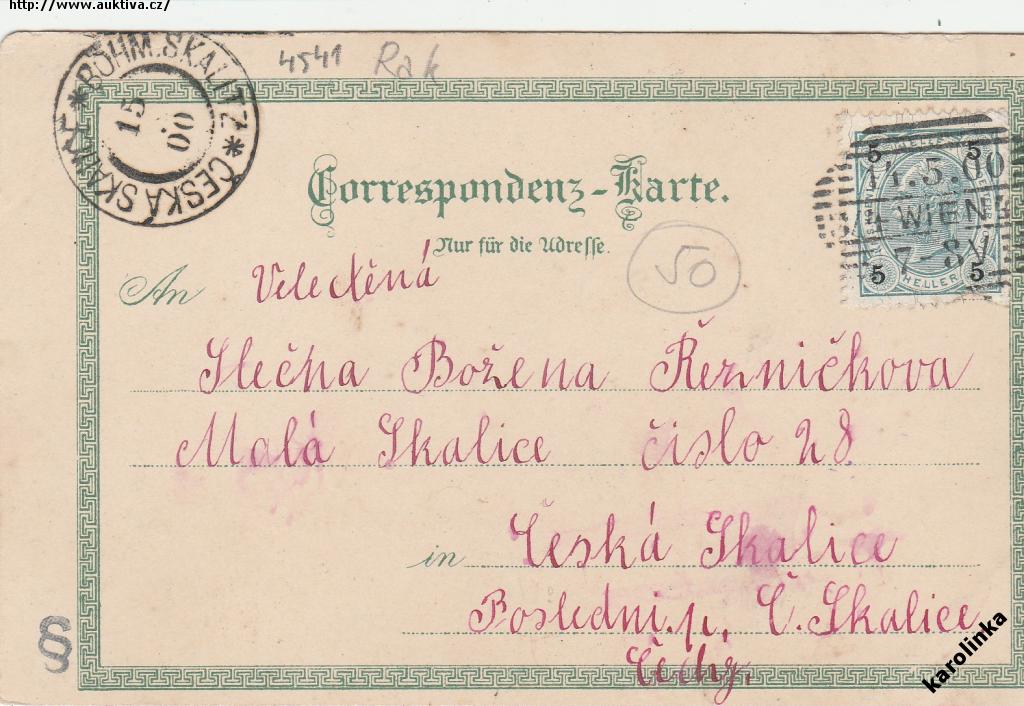 http://www.auktiva.cz/
4541 Rak
* BÖHM. SKALITZ * ČESKÁ SKALICE
15
00
5 HELLER 5
14.5.00
WIEN
7-8V
5 HELLER 5
Correspondenz-Karte.
Nur für die Adresse.
50
An Veletěná
Slečna Božena Řezníčkova
Malá Skalice čislo 28
in Česká Skalice
Poslední p. Č. Skalice
Čechy.
§
karolinka